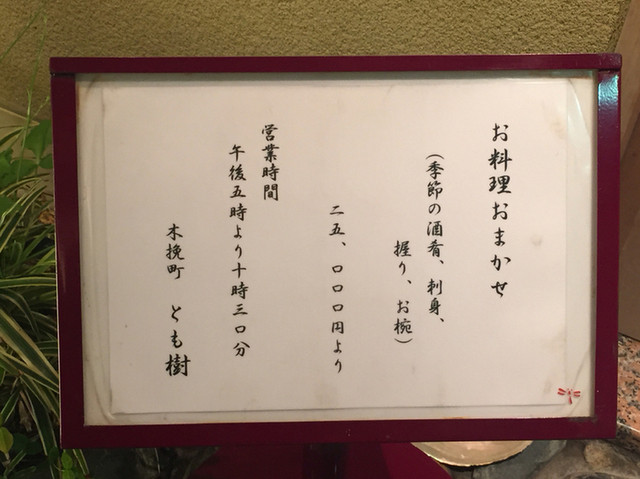 お料理おまかせ
（季節の酒肴、刺身、
握り、お椀）
二五、〇〇〇円より
営業時間
午後五時より十時三〇分
木挽町 とも樹